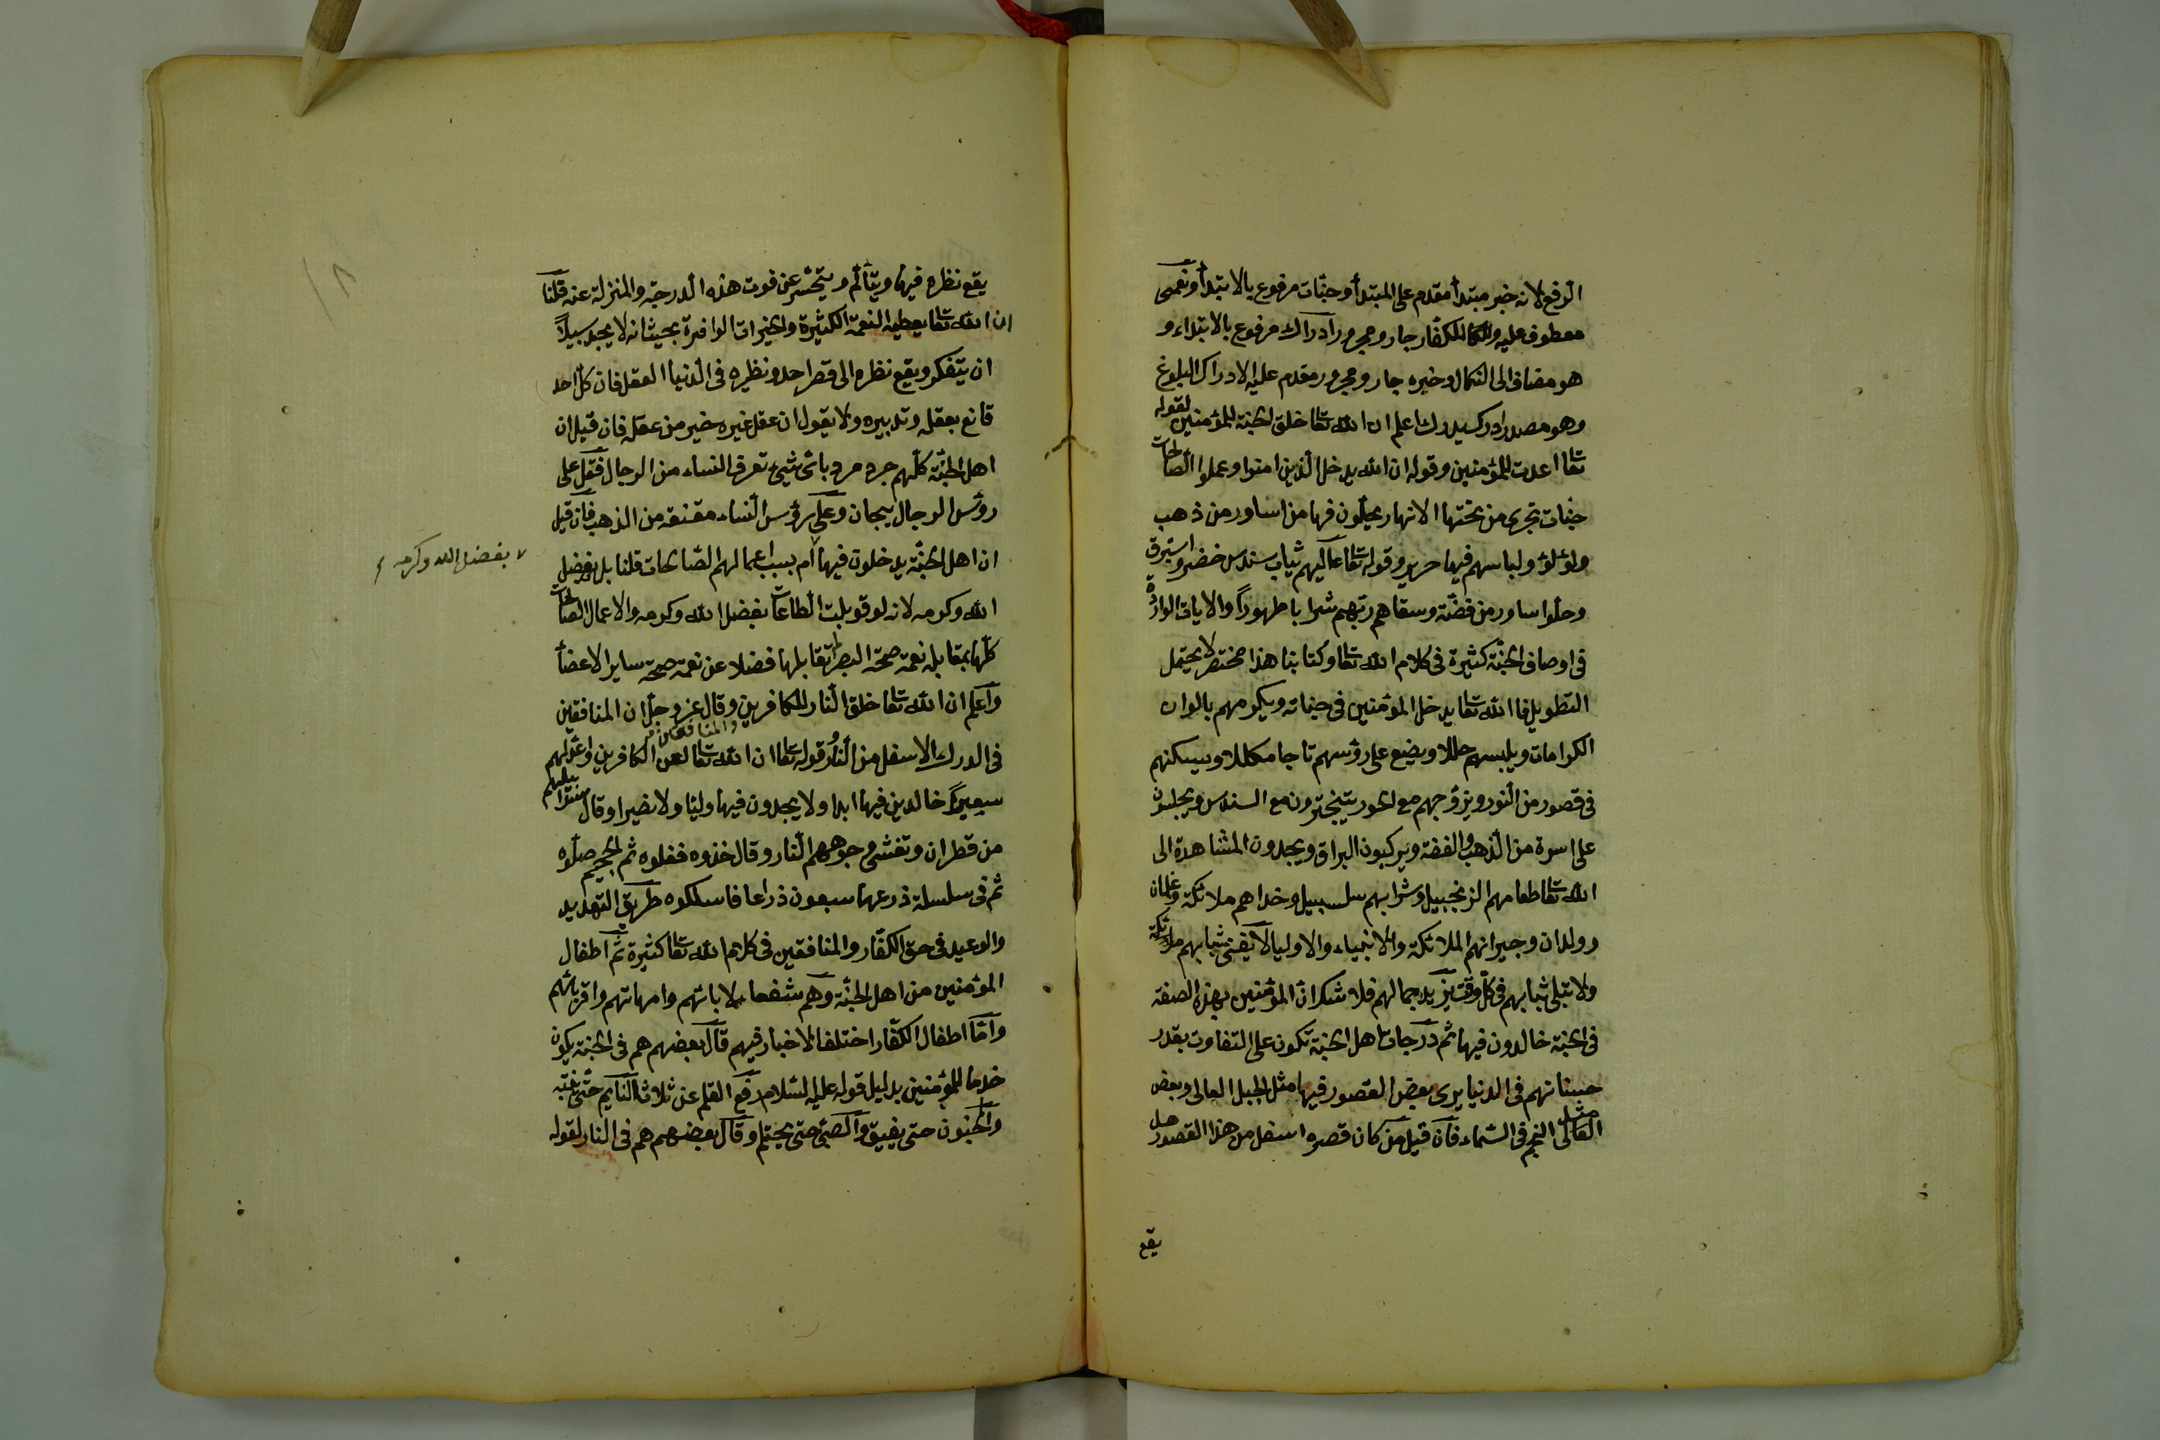 الرفع لانه خبر مبتدأ مقدم على المبتدأ وجنّات مرفوع بالابتدأ ونعمى
معطوف عليه وللكفّار جار ومجرور أدراك مرفوع بالابتداء و
هو مضاف الى النكال وخبره جار ومجرور مقدم عليه الادراك البلوغ
وهو مصدر ادرك يدرك اعلم ان الله تعا خلق الجنة للمؤمنين لقوله
تعا اعدت للمؤمنين وقوله ان الله يدخل الذين امنوا وعملوا الصالحات
جنات تجرى من تحتها الانهار يحلّون فيها من اساور من ذهب
ولؤلؤ ولباسهم فيها حرير وقوله تعا عاليهم ثياب سندس خضر واستبرق
وحلّوا اساور من فضّة وسقاهم ربّهم شرابا طهورا والايات الواردة
فى اوصاف الجنّة كثيرة فى كلام الله تعا وكتابنا هذا مختصر لا يحتمل
التطويل فا الله تعا يدخل المؤمنين فى جناته ويكرمهم بالوان
الكرامات ويلبسهم حللا ويضع على رؤسهم تاجا مكللا ويسكنهم
فى قصور من النّور ويزوّجهم مع الحور يتبخترون مع السندس ويجلسون
على اسرة من الذهب والفضة ويركبون البراق ويجدون المشاهدة الى
الله تعا طعامهم الزنجبيل وشرابهم سلسبيل وخدامهم ملائكة وغلمان
وولدان وجيرانهم الملائكة والانبياء والاوليا لا يفنى شبابهم
ولا تبلى ثيابهم فى كلّ وقت يزيد جمالهم فلا شك ان المؤمنين بهذه الصفة
فى الجنة خالدون فيها ثم درجات اهل الجنة تكون على التفاوت بقدر
حسناتهم فى الدنيا يرى بعض القصور فيها مثل الجبل العالى وبعض
العالى مثل النجم فى السّماء فان قيل من كان قصره اسفل من هذا القصور هل
يقع
يقع نظره فيها ويتألّم ويتحسّر عن فوت هذه الدرجة والمنزلة عنه قلنا
ان الله تعا يعطيه النعمة الكثيرة والخيرات الوافرة بحيث انه لا يجد سبيلاً
ان يتفكر ويقع نظره الى قصر احد ونظيره فى الدنيا العقل فان كلّ احد
قانع بعقله وتدبيره ولا يقول ان عقل غيره خير من عقله فان قيل ان
اهل الجنّة كلّهم جرد مرد باىّ شيئ تعرف النساء من الرجال فقل على
روئس الرجال تيجان وعلى رؤس النساء مقنعة من الذهب فان قيل
ان اهل الجنّة يدخلون فيها ام بسبب اعمالهم الصّالحات قلنا بل بفضل
بفضل الله وكرمه
الله وكرمه لانه لو قوبلت الطاعات بفضل الله وكرمه والاعمال الصالحات
كلّها بمقابلة نعمة صحّة البصر تقابلها فضلا عن نعمة صحّة ساير الاعضأ
واعلم ان الله تعا خلق النّار للكافرين والمنافقين وقال عزّ وجلّ ان المنافقين
فى الدرك الاسفل من النّار قوله تعا ان الله تعا لعن الكافرين واعدّ لهم
سعيرًا خالدين فيها ابدا ولا يجدون فيها وليّا ولا نصيرا وقال سرابيلهم
من قطران وتغشى وجوههم النّار وقال خذوه فغلوه ثم الجحيم صلّوه
ثم فى سلسلة ذرعها سبعون ذراعا فاسلكوه طريق التهديد
والوعيد فى حق الكفّار والمنافقين فى كلام الله تعا كثيرة ثمّ اطفال
المؤمنين من اهل الجنّة وهم شفعاء لابائهم وامهاتهم واقربائهم
وأمّا اطفال الكفّار اختلف الاخبار فيهم قال بعضهم هم فى الجنة يكون
خدما للمؤمنين بدليل قوله عليه السّلام رفع القلم عن ثلاث النّايم حتّى ينتبه
والمجنون حتى يفيق والصبىّ حتى يحتلم وقال بعضهم هم فى النار لقوله